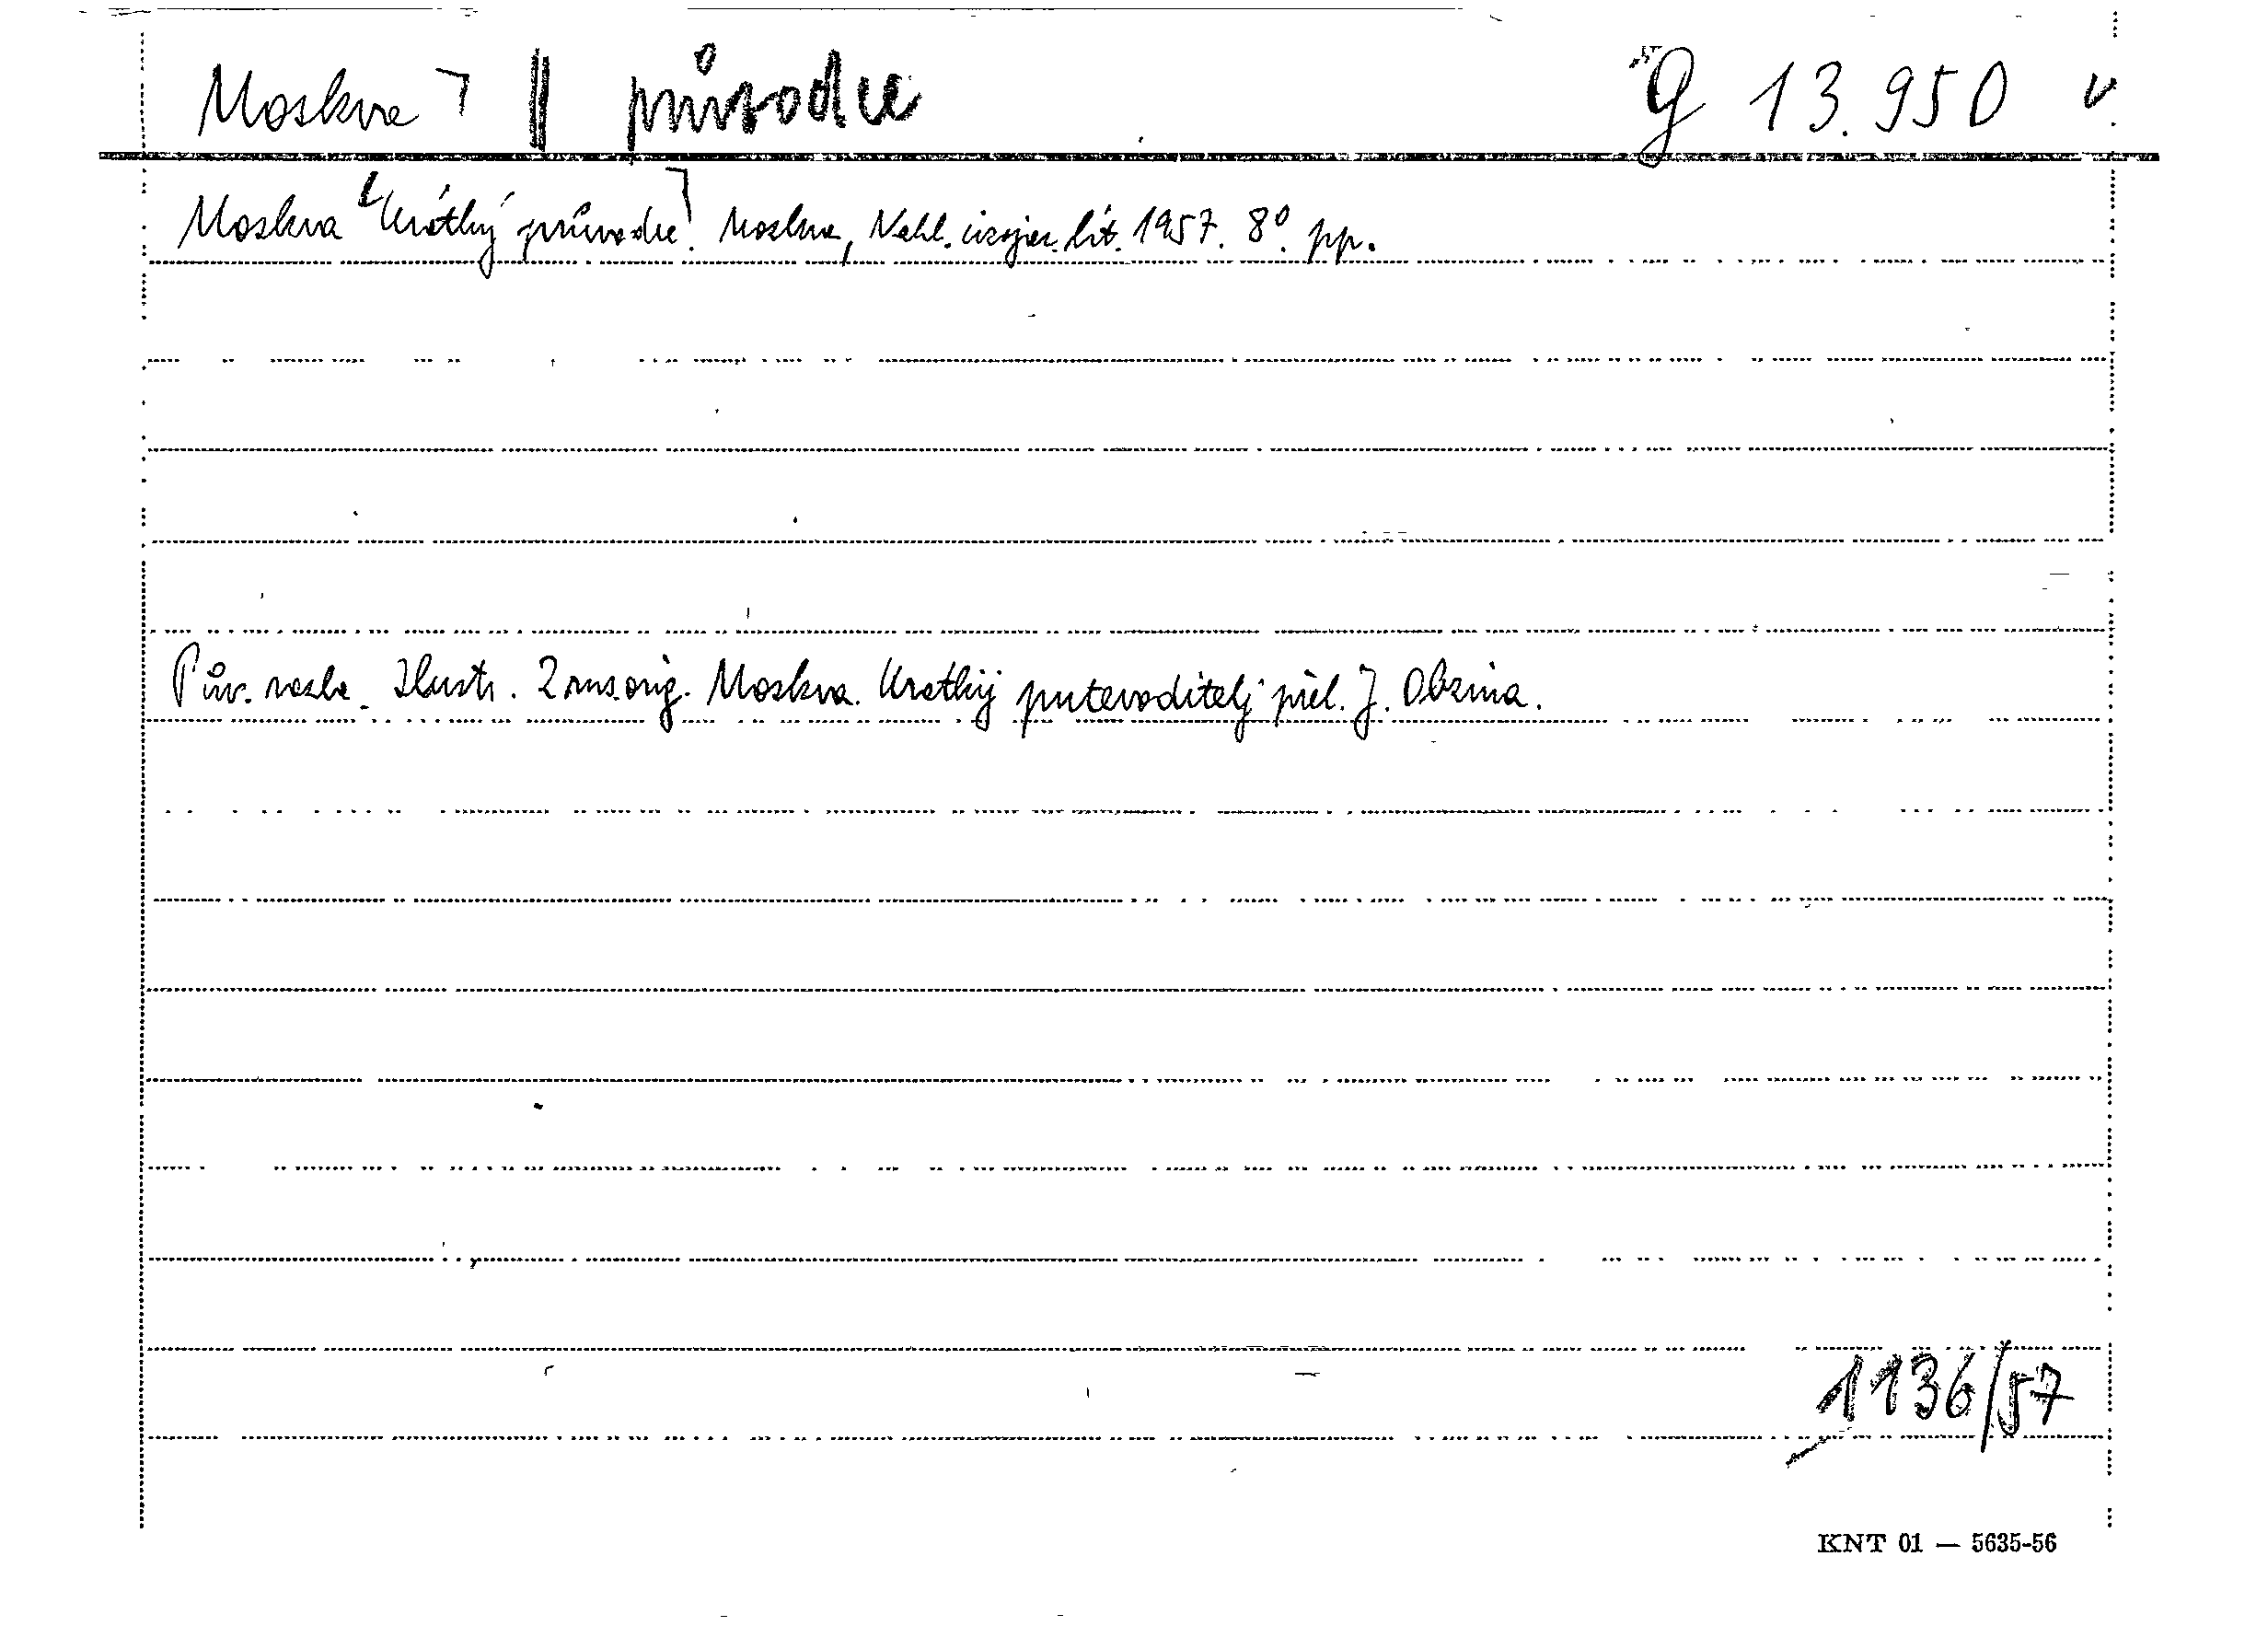 Moskva ‖ průvodce G 13.950 v
Moskva [Krátký průvodce]. Moskva, Nakl. cizojaz. lit. 1957. 8°. pp.
Pův. vazba. Ilustr. Z rus. orig. Moskva. Kratkij putevoditelj přel. J. Obzina.
1136/57
KNT 01 — 5635-56